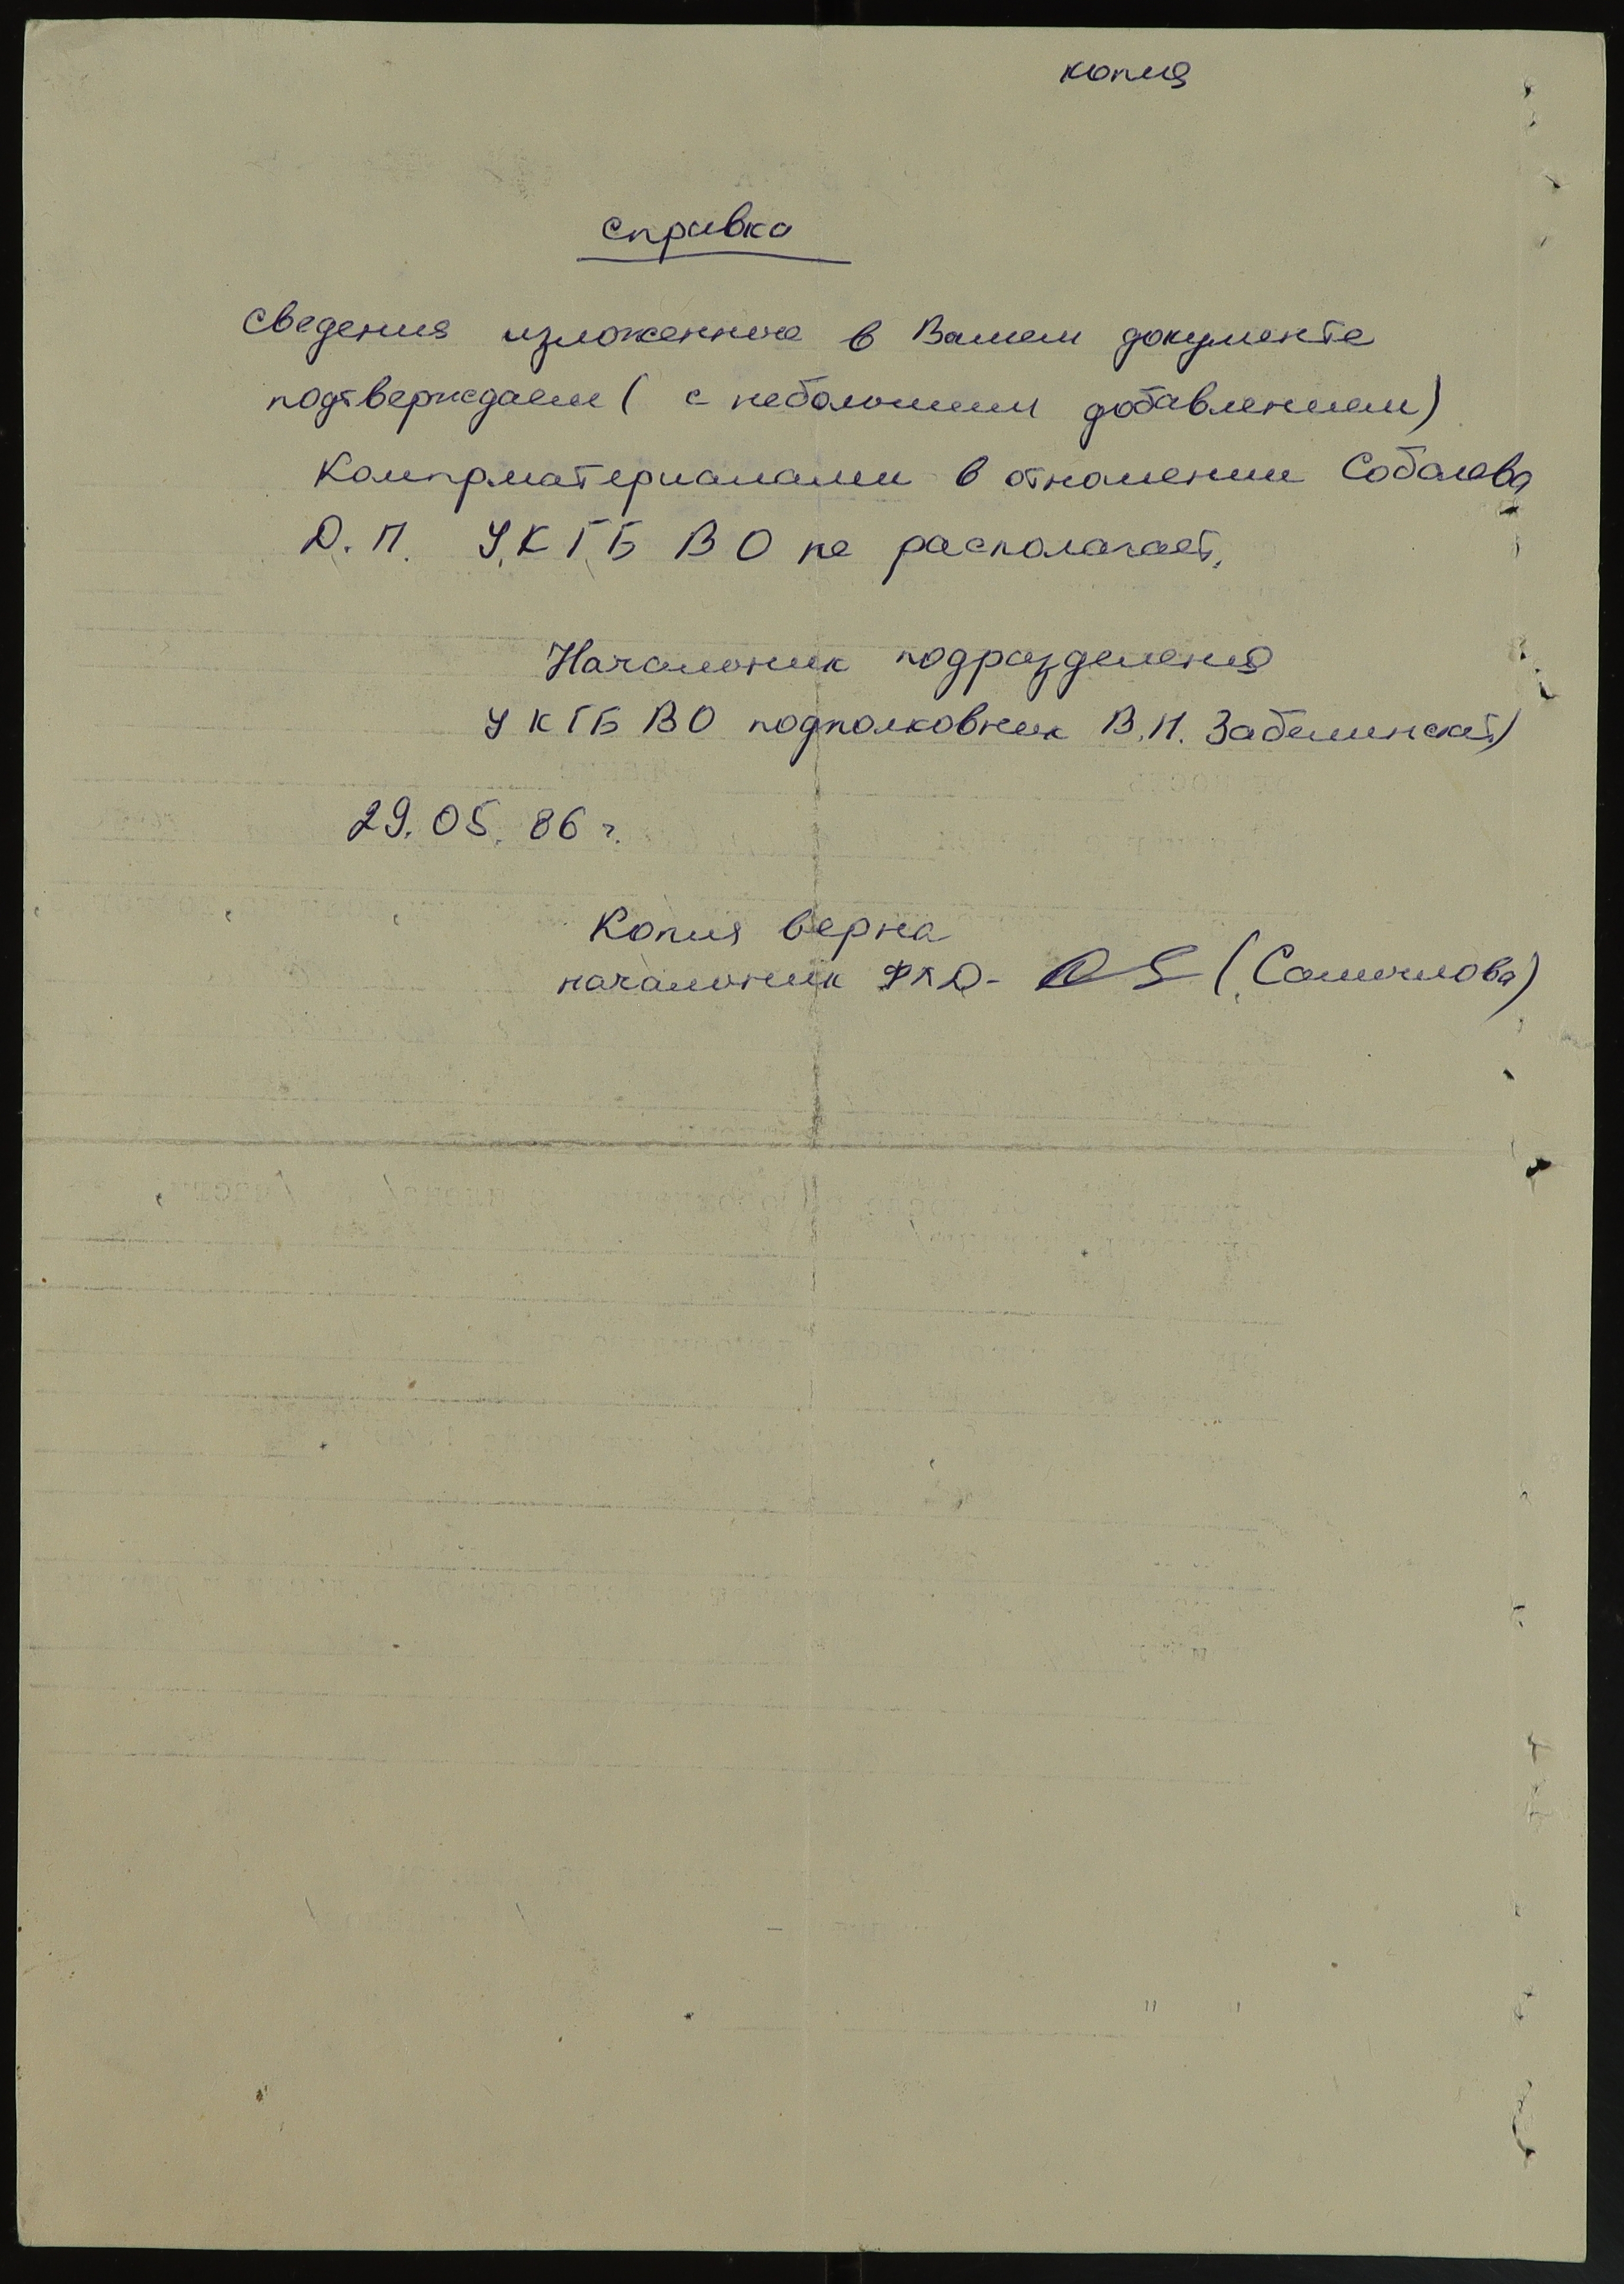 копия
справка
Сведения изложенные в Вашем документе
подтверждаем ( с небольшим добавлением)
Компрматериалами в отношении Соболева
Д. П. УКГБ ВО не располагает.
Начальник подразделения
УКГБ ВО подполковник В.И. Забелинский)
29.05.86 г.
Копия верна
начальник ФПД- (Самочкова)